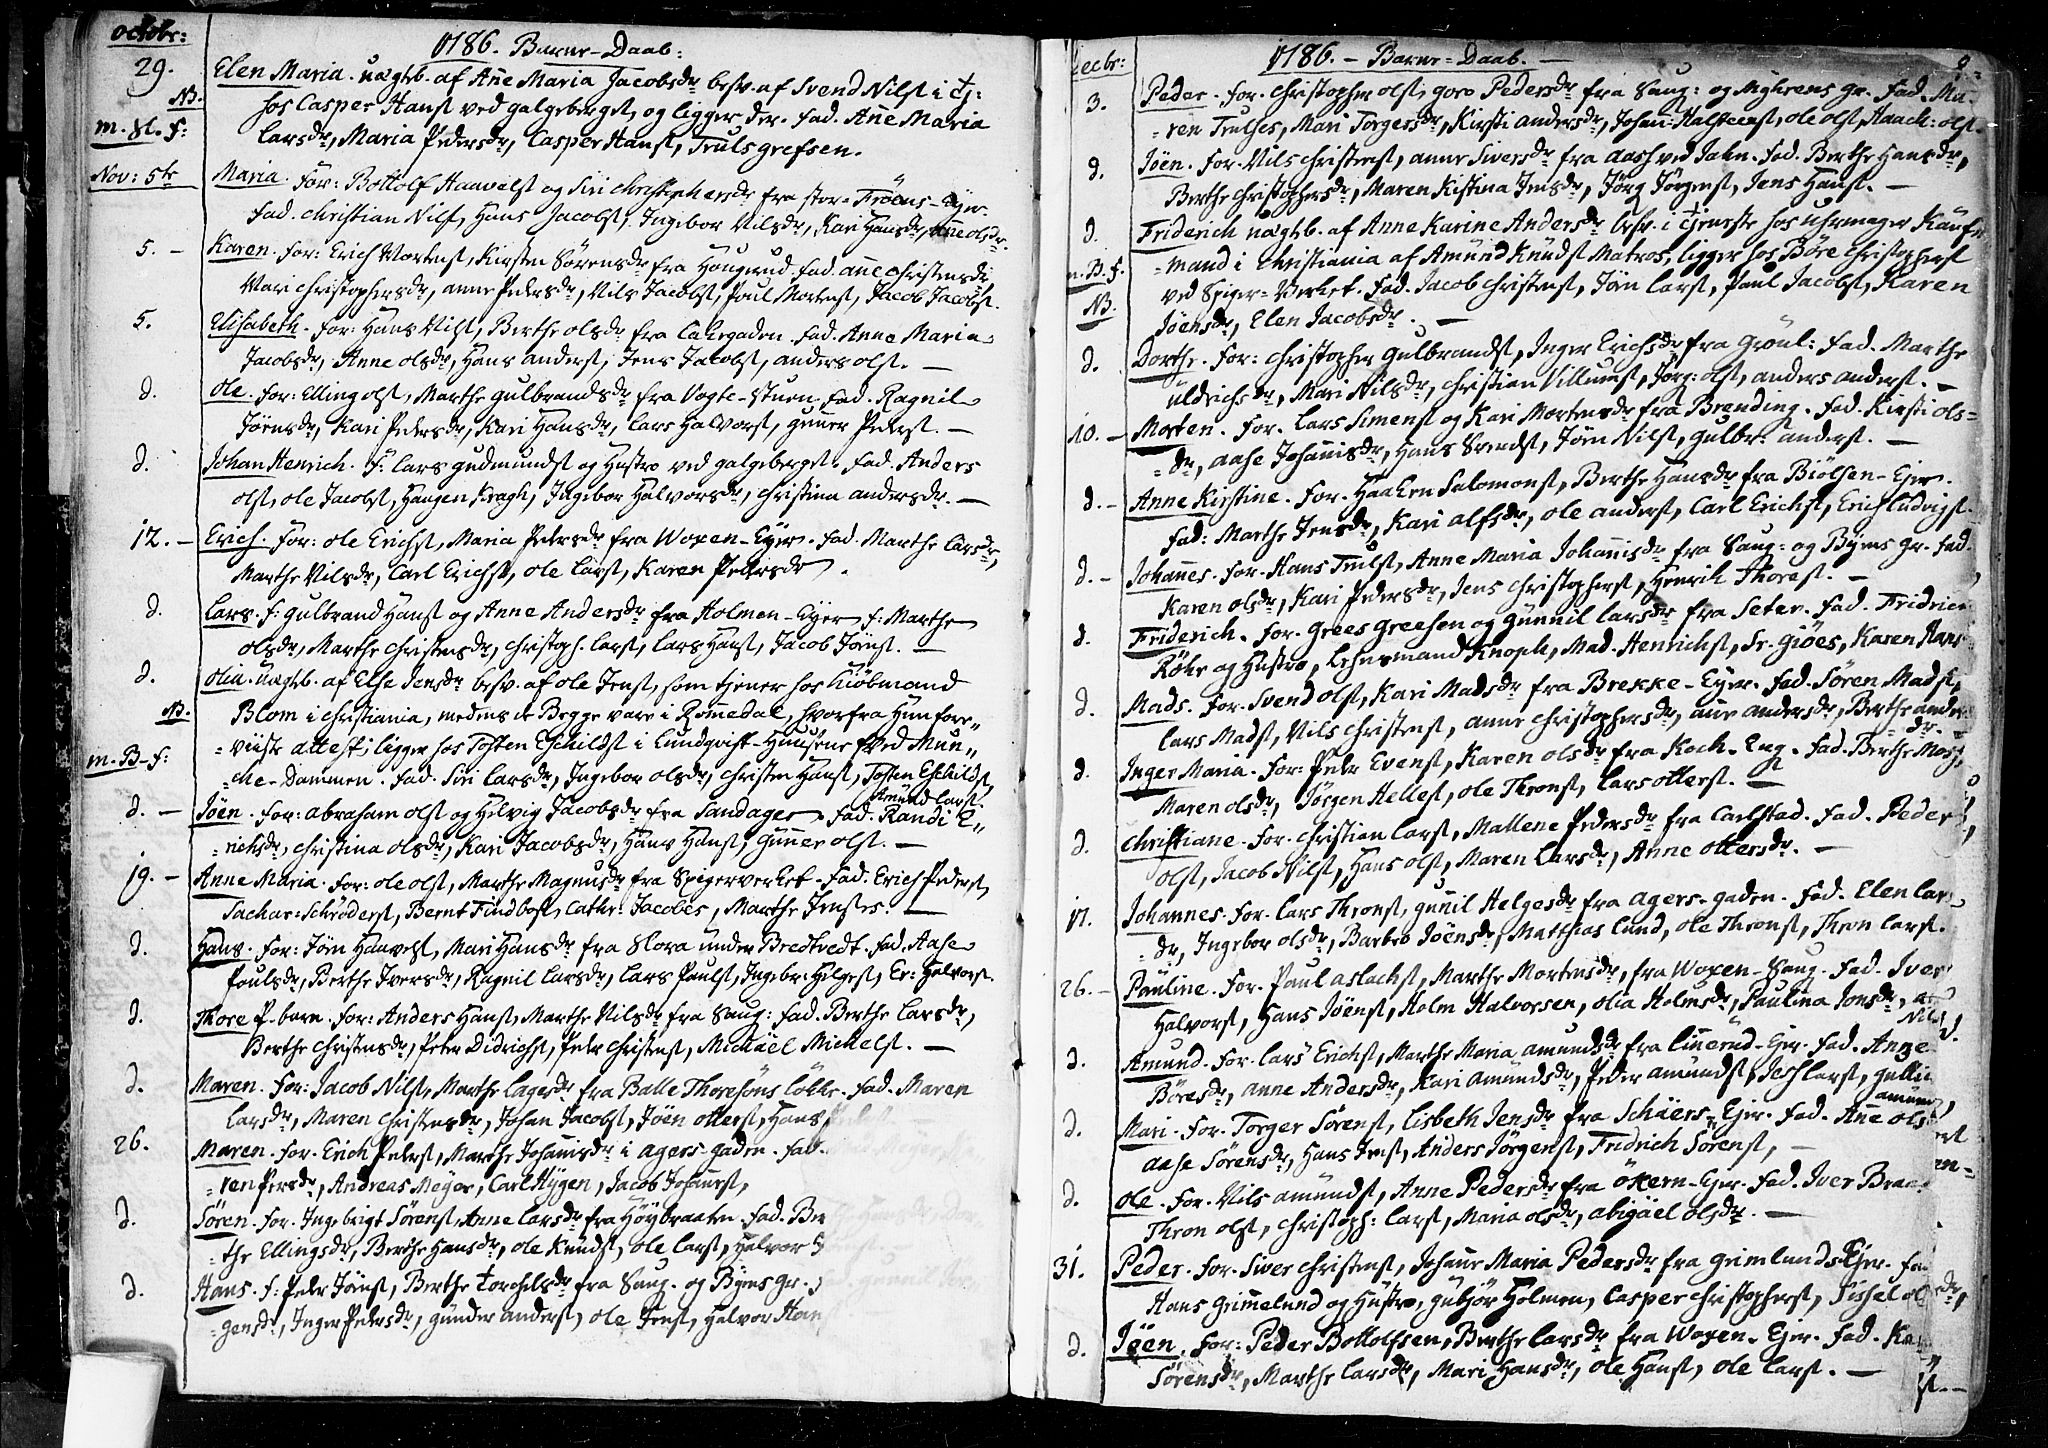 octobr:
1786. Barne-Daab:
29. Elen Maria. uægtb. af Añe Maria Jacobsdr besv. af Svend Nilsl i tj:
NB. hos Casper Hansl ved galgeberget, og ligger der. Fad. Añe Maria
m. Sl. F: Larsdr, Maria Pedersdr, Casper Hansl, Truls grefsen.
Nov: 5te Maria. For: Bottolf Haavelsl og Siri Christophersdr fra Stor-Fröens-Eyer.
Fad. Christian Nilsl, Hans Jacobsl, Ingebor Nilsdr, Kari Hansdr, Añe olsdr.
5. - Karen. For: Erich Mortensl, Kirsten Sörensdr fra Haugerud. Fad. añe Christensdr
Mari Christophersdr, anne Pedersdr, Nils Jacobsl, Poul Mortensl, Jacob Jacobsl.
5. Elisabeth. For: Hans Nilsl, Berthe olsdr fra Lakegaden. Fad. Anne Maria
Jacobsdr, Anne olsdr, Hans andersl, Jens Jacobsl, anders olsl. -
d. Ole. For: Elling olsl, Marthe gulbrandsdr fra Vogte-Stuen. Fad. Ragnil
Jörnsdr, Kari Pedersdr, Kari Hansdr, Lars Halvorsl, guner Pedersl. -
d. Johan Henrich. F: Lars gudmundsl og Hustro ved galgeberget. Fad. Anders
olsl, ole Jacobsl, Hansen Kragh, Ingebor Halvorsdr, Christina andersdr. -
12. - Erich. For: ole Erichsl, Maria Pedersdr fra Woxen-Eyer. Fad. Marthe Larsdr,
Marthe Nilsdr, Carl Erichsl, ole Larsl, Karen Pedersdr.
d. Lars. F: gulbrand Hansl og Anne Andersdr fra Holmen-Eyer F: Marthe
olsdr, Marthe Christensdr, Christoph. Larsl, Lars Hansl, Jacob Jörnsl. -
d. Olia. uægtb. af Else Jensdr besv. af ole Jensl, som tjener hos Kiöbmand
NB. Blom i Christiania, medens de Begge vare i Romedal, hvorfra Hun fore„
„viiste attest; ligger hos Tosten Eschildsl i Lundqvist-Huusene ved Mun„
m. B-F: „che-Dammen. Fad. Siri Larsdr, Ingebor olsdr, Christen Hansl, Tosten Eschildsl,
Amund Larsl.
d. - Jöen. For: abraham olsl og Helvig Jacobsdr fra Sandager. Fad. Randi E„
„richsdr, Christina olsdr, Kari Jacobsdr, Hans Hansl, guner olsl. -
19. - Anne Maria. For: ole olsl, Marthe Magnusdr fra Spigerverket. Fad: Erich Pedersl,
Sachar: Schrödersl, Bernt Findbosl, Cathr: Jacobes, Marthe Jenses. -
d. Hans. For: Jörn Haavelsl, Mari Hansdr fra Flora under Bredtvedt. Fad. Aase
Poulsdr, Berthe Iversdr, Ragnil Larsdr, Lars Paulsl, Ingebr: Helgesl, Er: Halvorsl.
d. Thore P-barn. For: Anders Hansl, Marthe Nilsdr fra Saug: Fad. Berthe Larsdr,
Berthe Christensdr, Peter Didrichsl, Peder Christensl, Michäel Michelsl. -
d. Maren. For: Jacob Nilsl, Marthe Lagesdr fra Balle Thoresöns Lökke. Fad. Maren
Larsdr, Maren Christensdr, Johan Jacobsl, Jöen ottersl, Hans
26. Maren. For. Erich Pedersl, Marthe Johañisdr i agers-gaden. Fad.
„ren Persdr, Andreas Meyer, Carl Hygen, Jacob Johañesl,
d. Sören. For. Ingebrigt Sörensl, Anne Larsdr fra Höybraaten. Fad. Ber
„the Ellingsdr, Berthe Hansdr, ole Knudsl, ole Larsl, Halvor
d. Hans. F: Peder Jörnsl, Berthe Torchelsdr fra Saug. og Byens gr.
„gensdr, Inger Pedersdr, gunder andersl, ole Jensl, Halvor Han
Decbr:
1786. - Barne-Daab. -
3. Peder. For. Christopher olsl, goro Pedersdr fra Saug: og Myhrens gr. Fad. Ma-
„ren Trulses, Mari Torgersdr, Kirsti andersdr, Johan Halsteensl, ole olsl, Haach: olsl.
d. Jöen. For. Nils Christensl, anne Siversdr fra aash ved Jahn. Fad. Berthe Hansdr,
Berthe Christophersdr, Maren Kistina Jensdr, Jörg Jörgensl, Jens Hansl. -
d. Friderich uægtb. af Anne Karine Andersdr besv. i tjeneste hos Uhrmager Kauf-
m. B. F. „mand i Christiania af Amund Knudsl Matros, ligger hos Böre Christophersl
NB. ved Spiger-Verket. Fad. Jacob Christensl, Jörn Larsl, Paul Jacobsl, Karen
Jöensdr, Elen Jacobsdr. -
d. Dorthe. For: Christopher gulbrandsl, Inger Erichsdr fra gröul: Fad. Marthe
uldrichsdr, Mari Nilsdr, Christian Villumsl, Jörg: olsl, anders andersl. -
10. - Morten. For. Lars Simensl og Kari Mortensdr fra Brending. Fad. Kirsti ols-
„dr, aase Johañisdr, Hans Svendsl, Jörn Nilsl, gulbr: andersl. -
d. - Anne Kirstine. For. Haaken Salomonsl, Berthe Hansdr fra Biölsen-Ejer.
Fad: Marthe Jensdr, Kari alfsdr, ole andersl, Carl Erichsl, Erich Ludvigsl.
d. - Johañes. For. Hans Trulsl, Anne Maria Johañisdr fra Saug: og Byens gr. Fad.
Karen olsdr, Kari Pedersdr, Jens Christophersl, Henrik Thoresl. -
d. Friderich. For. Grees Greesen og guñil Larsdr fra Seter. Fad. Fridric
Röhr og Hustro, Lehnsmand Knoph, Mad. Henrichsl, Fr. Giöes, Karen Hans
d. Mads. For. Svend olsl, Kari Madsdr fra Brekke-Eyer. Fad. Sören Madsl,
Lars Madsl, Nils Christensl, anne Christophersdr, ane andersdr, Berthe anders
dr. -
d. Inger Maria. For: Peder Evensl, Karen olsdr fra Koch-Eng. Fad. Berthe
Maren olsdr, Jörgen Hellesl, ole Thronsl, Lars ottersl. -
d. Christiane. For. Christian Larsl, Mallene Pedersdr fra Carlstad. Fad. Peder
olsl, Jacob Nilsl, Hans olsl, Maren Larsdr, Anne ottersdr. -
17. Johannes. For. Lars Thronsl, gunil Helgesdr fra agers-gaden. Fad. Elen Lar
„dr, Ingebor olsdr, Barbro Jöensdr, Matthias Lund, ole Thronsl, Thron Larsl.
26. - Pauline. For. Paul aslachsl, Marthe Mortensdr, fra Woxen-Saug. Fad. Iver
Halvorsl, Hans Jöensl, Holm Halvorsen, olia Holmsdr, Paulina Jonsdr,
Nils
d. Amund. For. Lars Erichsl, Marthe Maria amundsdr fra Linnerud-Ejer. Fad. Anne
Böresdr, anne Andersdr, Kari Amundsdr, Peder amundsl, Jesh Larsl,
amund
d. Mari. For. Torger Sörensl, Lisbeth Jensdr fra Schäers-Ejer. Fad. Añe ols
aase Sörensdr, Hans Jensl, Anders Jörgensl, Fridrich Sörensl, -
d. Ole. For. Nils amundsl, Anne Pedersdr fra ökern-Ejer. Fad. Iver Braa
Thron olsl, Christoph: Larsl, Maria olsdr, abigäel olsdr. -
31. Peder. For. Siver Christensl, Johañe Maria Pedersdr fra grimelunds Ejer. Fad
Hans grimelund og Hustro, gubjör Holmen, Casper Christophersl, Sissel ol
d. Jöen. For: Peder Bottolfsen, Berthe Larsdr fra Woxen-Ejer. Fad. Ka
Sörensdr, Marthe Larsdr, Mari Hansdr, ole Hansl, ole Larsl. -